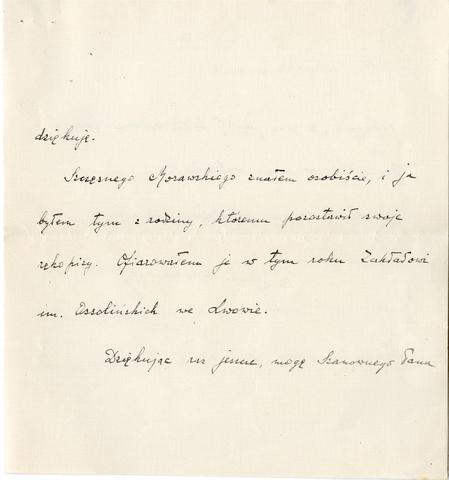 dziękuję.
Szczęsnego Morawskiego znałem osobiście, i ja
byłem tym z rodziny, któremu pozostawił swoje
rękopisy. Ofiarowałem je w tym roku Zakładowi
im. Ossolińskich we Lwowie.
Dziękując raz jeszcze, mogę Szanownego Pana